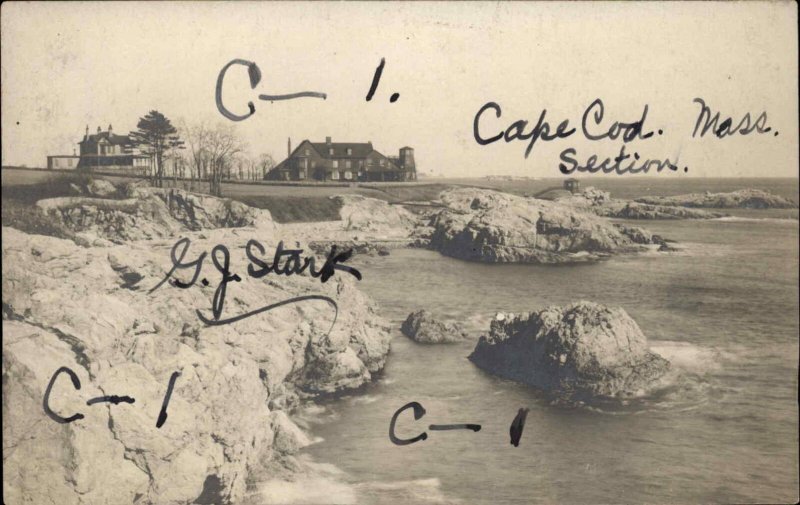 C - 1.
Cape Cod. Mass.
Section.
G. J. Stark
C - 1
C - 1